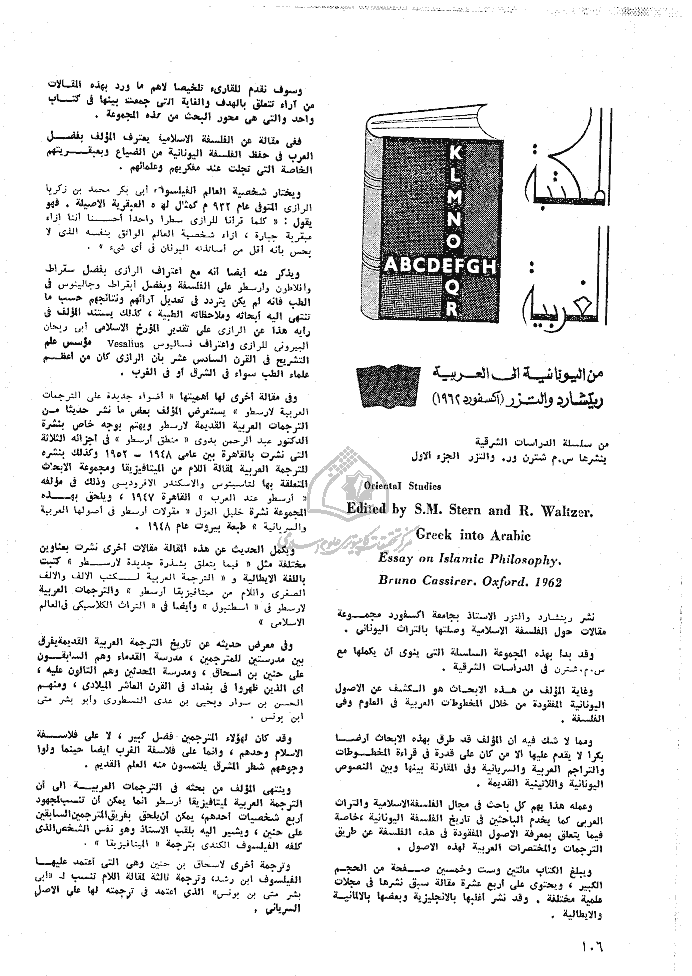 المكتبة
الغربية
K
L
M
N
O
ABCDEFGH
Q
R
من اليونانية الى العربية
ريتشارد والتزر (أكسفورد ١٩٦٢)
من سلسلة الدراسات الشرقية
ينشرها س.م شترن ور. والتزر الجزء الاول
Oriental Studies
Edited by S.M. Stern and R. Waltzer.
Greek into Arabic
Essay on Islamic Philosophy.
Bruno Cassirer. Oxford. 1962
نشر ريتشارد والتزر الاستاذ بجامعة اكسفورد مجموعة
مقالات حول الفلسفة الاسلامية وصلتها بالتراث اليونانى .
وقد بدأ بهذه المجموعة السلسلة التى ينوى أن يكملها مع
س.م.شترن فى الدراسات الشرقية .
وغاية المؤلف من هذه الابحاث هو الكشف عن الاصول
اليونانية المفقودة من خلال المخطوطات العربية فى العلوم وفى
الفلسفة .
ومما لا شك فيه أن المؤلف قد طرق بهذه الابحاث أرضا
بكرا لا يقدم عليها الا من كان على قدرة فى قراءة المخطوطات
والتراجم العربية والسريانية وفى المقارنة بينها وبين النصوص
اليونانية واللاتينية القديمة .
وعمله هذا يهم كل باحث فى مجال الفلسفة الاسلامية والتراث
العربى كما يخدم الباحثين فى تاريخ الفلسفة اليونانية ،خاصة
فيما يتعلق بمعرفة الاصول المفقودة فى هذه الفلسفة عن طريق
الترجمات والمختصرات العربية لهذه الاصول .
ويبلغ الكتاب مائتين وست وخمسين صفحة من الحجم
الكبير ، ويحتوى على أربع عشرة مقالة سبق نشرها فى مجلات
علمية مختلفة . وقد نشر أغلبها بالانجليزية وبعضها بالالمانية
والايطالية .
وسوف نقدم للقارىء تلخيصا لاهم ما ورد بهذه المقالات
من آراء تتعلق بالهدف والغاية التى جمعت بينها فى كتاب
واحد والتى هى محور البحث من هذه المجموعة .
ففى مقالة عن الفلسفة الاسلامية يعترف المؤلف بفضل
العرب فى حفظ الفلسفة اليونانية من الضياع وبعبقريتهم
الخاصة التى تجلت عند مفكريهم وعلمائهم .
ويختار شخصية العالم الفيلسوف أبى بكر محمد بن زكريا
الرازى المتوفى عام ٩٢٢ م كمثال لهذه العبقرية الاصيلة . فهو
يقول : « كلما قرأنا للرازى سطرا واحدا أحسسنا أننا ازاء
عبقرية جبارة ، ازاء شخصية العالم الواثق بنفسه الذى لا
يحس بأنه أقل من أساتذته اليونان فى أى شىء » .
ويذكر عنه أيضا أنه مع اعتراف الرازى بفضل سقراط
وأفلاطون وأرسطو على الفلسفة وبفضل أبقراط وجالينوس فى
الطب فانه لم يكن يتردد فى تعديل آرائهم ونتائجهم حسب ما
تنتهى اليه أبحاثه وملاحظاته الطبية ، كذلك يستند المؤلف فى
رأيه هذا عن الرازى على تقدير المؤرخ الاسلامى أبى ريحان
البيرونى للرازى واعتراف فساليوس Vesalius مؤسس علم
التشريح فى القرن السادس عشر بأن الرازى كان من أعظم
علماء الطب سواء فى الشرق أو فى الغرب .
وفى مقالة أخرى لها أهميتها « أضواء جديدة على الترجمات
العربية لارسطو » يستعرض المؤلف بعض ما نشر حديثا من
الترجمات العربية القديمة لارسطو ويهتم بوجه خاص بنشرة
الدكتور عبد الرحمن بدوى « منطق أرسطو » فى أجزائه الثلاثة
التى نشرت بالقاهرة بين عامى ١٩٤٨ – ١٩٥٢ وكذلك بنشره
للترجمة العربية لمقالة اللام من الميتافيزيقا ومجموعة الابحاث
المتعلقة بها لتامسيتوس والاسكندر الافروديسى وذلك فى مؤلفه
« أرسطو عند العرب » القاهرة ١٩٤٧ ، ويلحق بهذه
المجموعة نشرة خليل الغزل « مقولات أرسطو فى أصولها العربية
والسريانية » طبعة بيروت عام ١٩٤٨ .
ويكمل الحديث عن هذه المقالة مقالات أخرى نشرت بعناوين
مختلفة مثل « فيما يتعلق بشذرة جديدة لارسطو » كتبت
باللغة الايطالية و « الترجمة العربية لكتب الالف والالف
الصغرى واللام من ميتافيزيقا أرسطو » والترجمات العربية
لارسطو فى « اسطنبول » وأيضا فى « التراث الكلاسيكى فى العالم
الاسلامى »
وفى معرض حديثه عن تاريخ الترجمة العربية القديمة يفرق
بين مدرستين للمترجمين ، مدرسة القدماء وهم السابقون
على حنين بن اسحاق ، ومدرسة المحدثين وهم التالون عليه ،
أى الذين ظهروا فى بغداد فى القرن العاشر الميلادى ، ومنهم
الحسن بن سوار ويحيى بن عدى النسطورى وأبو بشر متى
ابن يونس .
وقد كان لهؤلاء المترجمين فضل كبير ، لا على فلاسفة
الاسلام وحدهم ، وانما على فلاسفة الغرب أيضا حينما ولوا
وجوههم شطر المشرق يلتمسون منه العلم القديم .
وينتهى المؤلف من بحثه فى الترجمات العربية الى أن
الترجمة العربية لميتافيزيقا أرسطو انما يمكن أن تنسب لمجهود
أربع شخصيات أحدهم، يمكن أن يلحق بفريق المترجمين السابقين
على حنين ، ويشير اليه بلقب الاستاذ وهو نفس الشخص الذى
كلفه الفيلسوف الكندى بترجمة « الميتافيزيقا » .
وترجمة أخرى لاسحاق بن حنين وهى التى اعتمد عليها
الفيلسوف ابن رشد، وترجمة ثالثة لمقالة اللام تنسب لـ «أبى
بشر متى بن يونس» الذى اعتمد فى ترجمته لها على الاصل
السريانى .
١٠٦